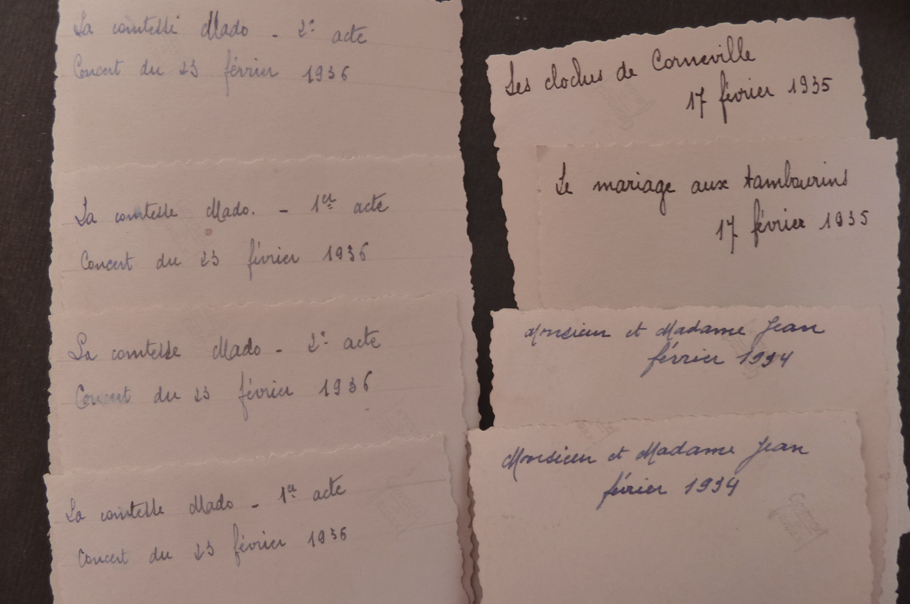 La comtesse Mado - 2e acte
Concert du 23 février 1936
La comtesse Mado. - 1er acte
Concert du 23 février 1936
La comtesse Mado - 2e acte
Concert du 23 février 1936
La comtesse Mado - 1er acte
Concert du 23 février 1936
Les cloches de Corneville
17 février 1935
Le mariage aux tambourins
17 février 1935
Monsieur et Madame Jean
février 1934
Monsieur et Madame Jean
février 1934